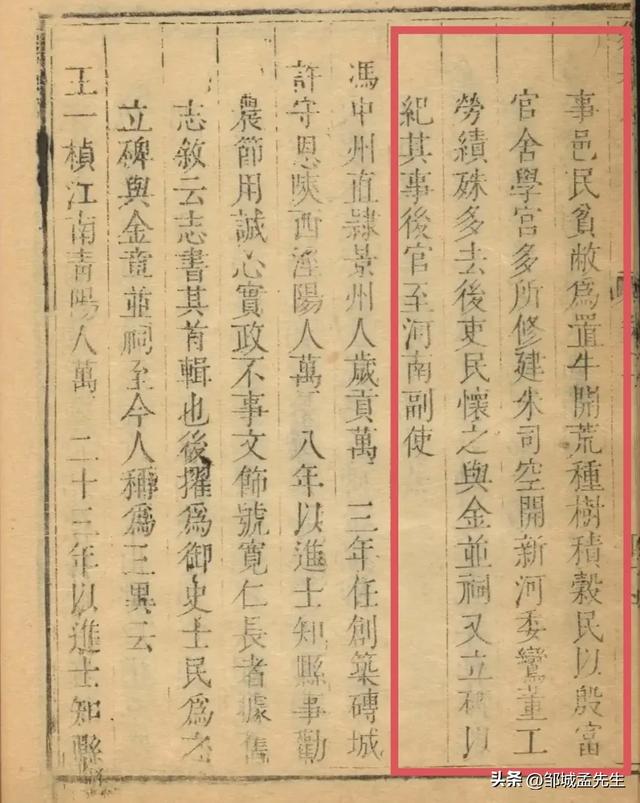 事邑民貧敝為置牛開荒種樹積穀民以殷富
官舍學宮多所修建朱司空開新河委鸞董工
勞績殊多去後吏民懷之與金並祠又立碑以
紀其事後官至河南副使
馮中州直隸景州人歲貢萬 三年任創築磚城
許守恩陝西涇陽人萬 八年以進士知縣事勸
農節用誠心實政不事文飾號寬仁長者據舊
志敘云志書其首輯也後擢為御史士民為之
立碑與金章並祠至今人稱為三異云
王一楨江南青陽人萬 二十三年以進士知縣
头条 @邹城孟先生